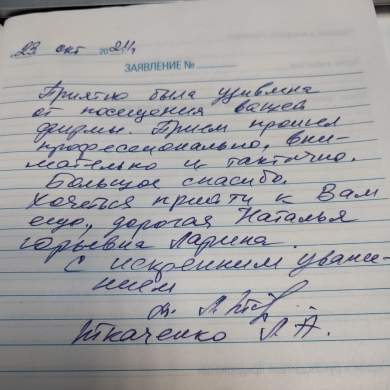 23 окт 2021г
ЗАЯВЛЕНИЕ №
Приятно была удивлена
от посещения вашей
фирмы. Прием прошел
профессионально, вни-
мательно и тактично.
Большое спасибо.
Хочется прийти к Вам
еще, дорогая Наталья
Юрьевна Ларина.
С искренним уваже-
нием
Ткаченко Л.А.